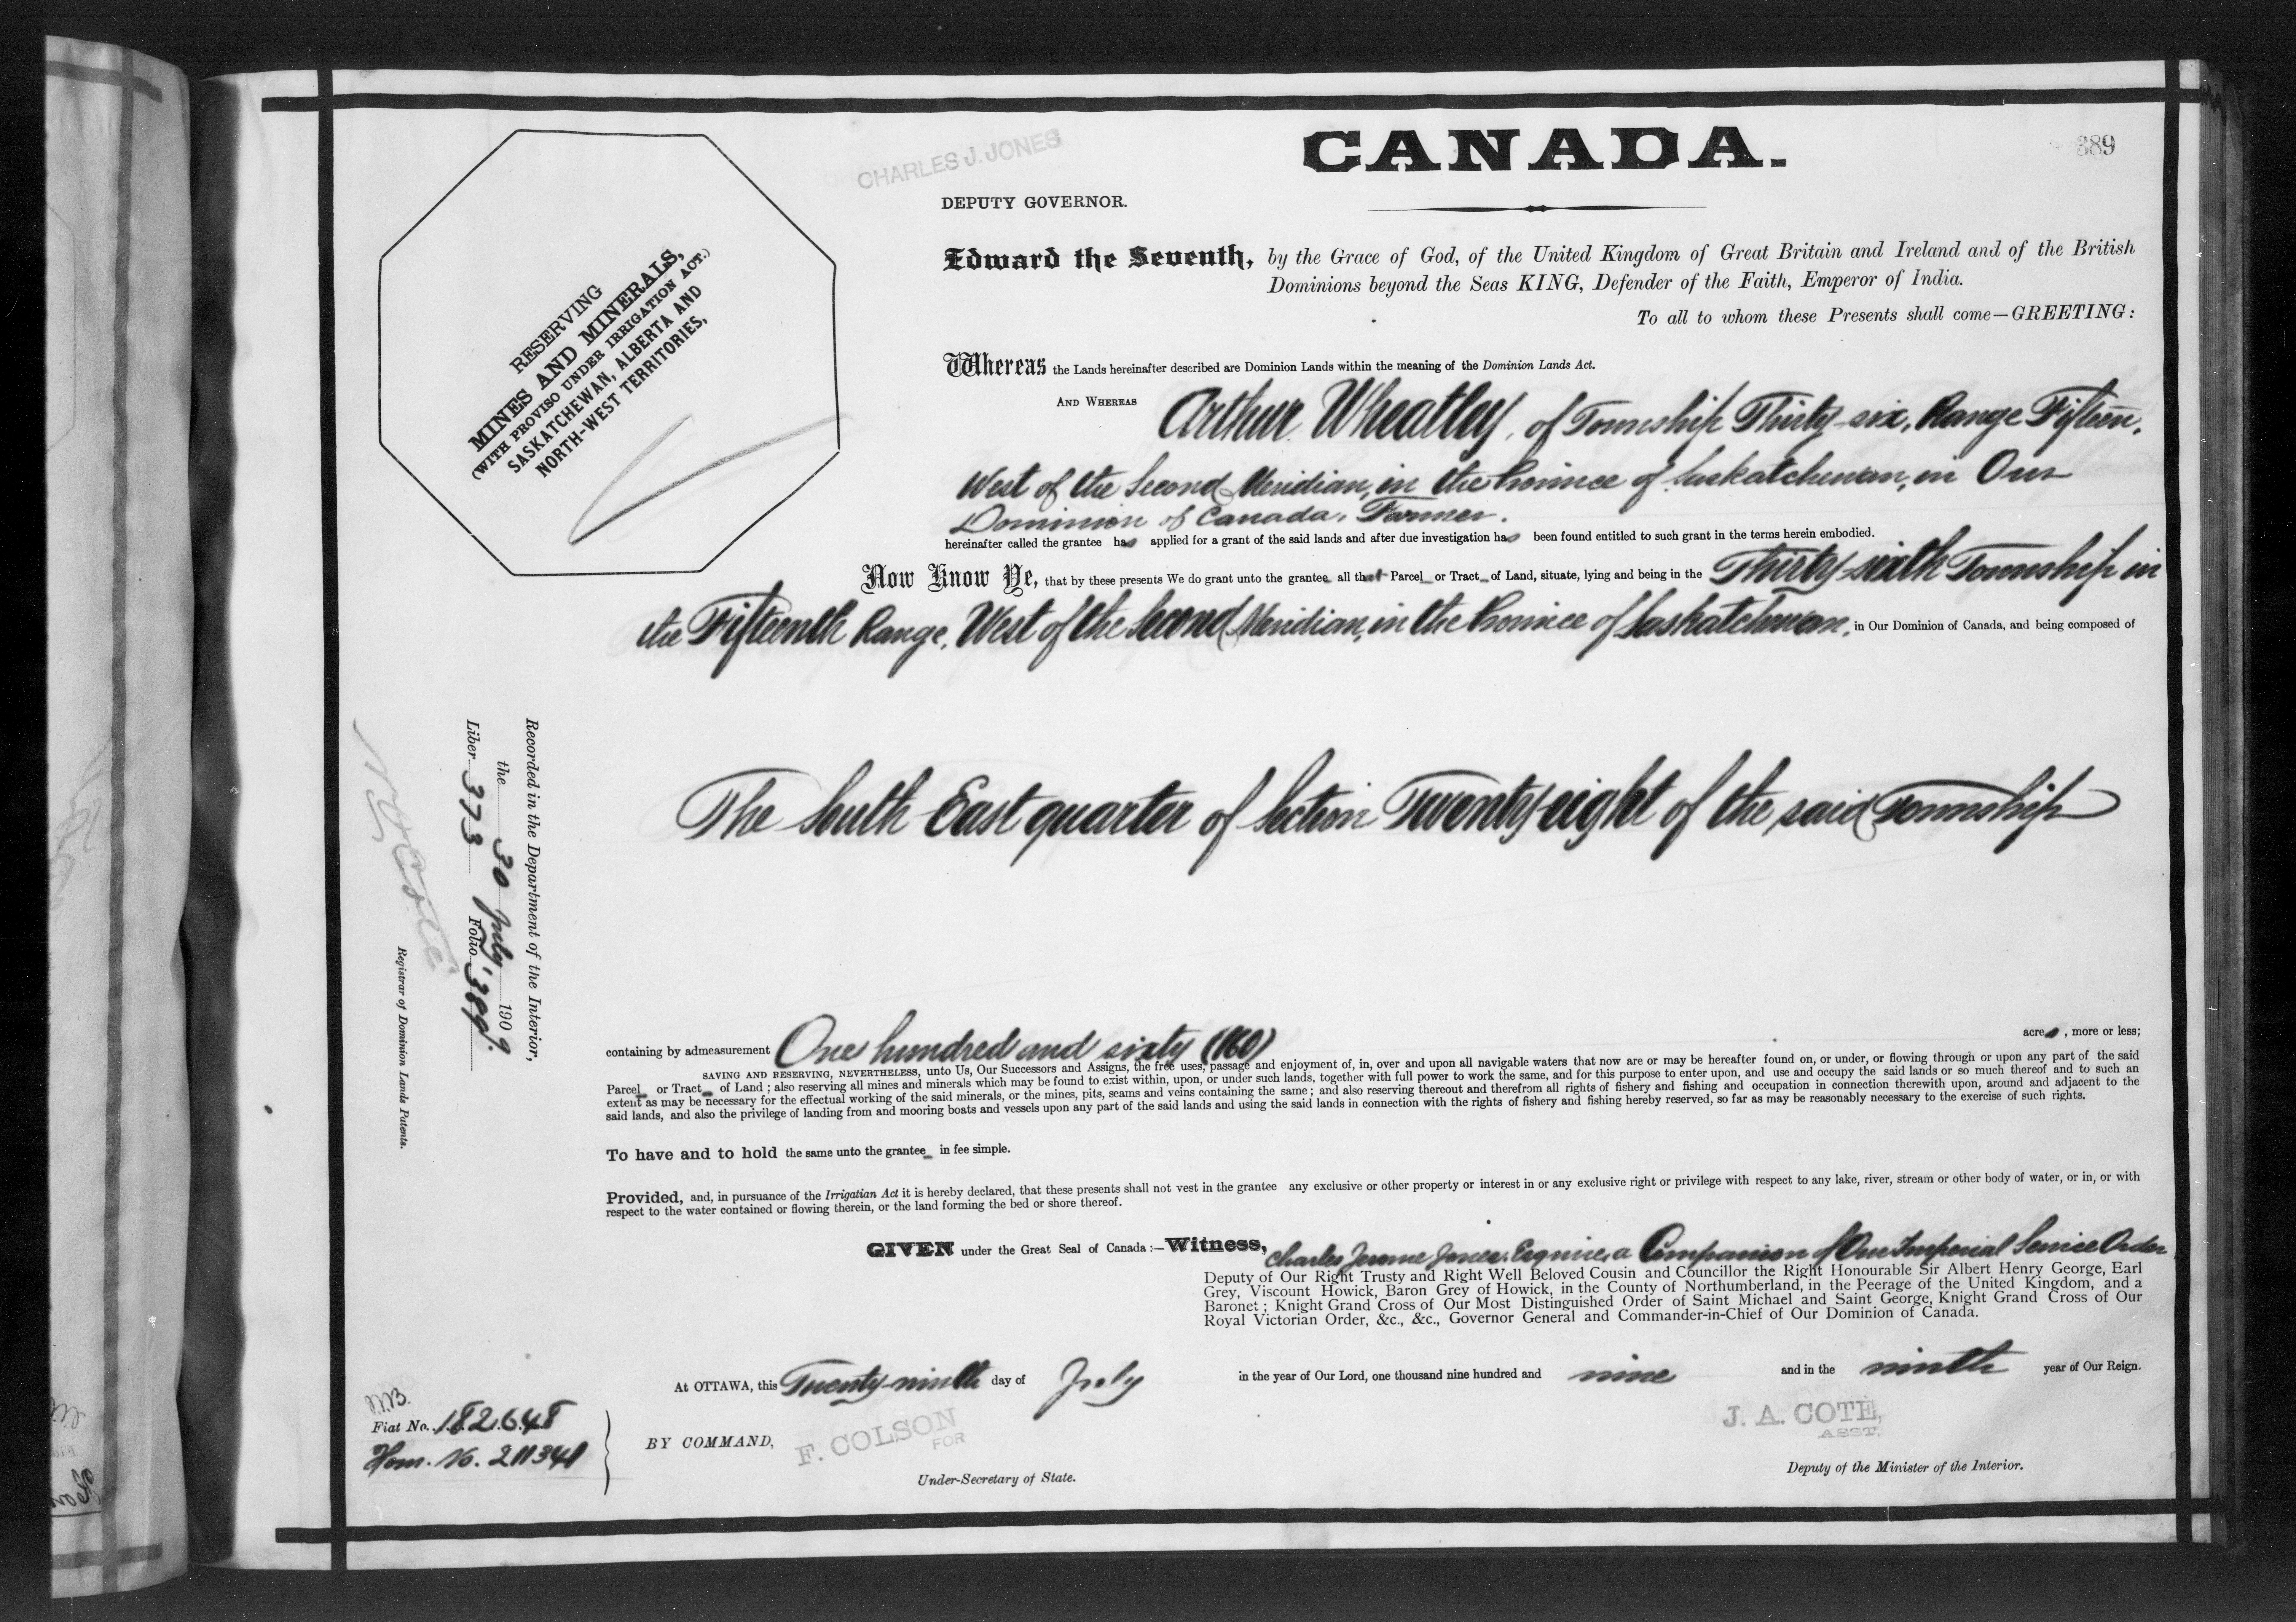 CANADA.
389
CHARLES J. JONES
DEPUTY GOVERNOR.
RESERVING
MINES AND MINERALS,
(WITH PROVISO UNDER IRRIGATION ACT.)
SASKATCHEWAN, ALBERTA AND
NORTH-WEST TERRITORIES,
Edward the Seventh, by the Grace of God, of the United Kingdom of Great Britain and Ireland and of the British
Dominions beyond the Seas KING, Defender of the Faith, Emperor of India.
To all to whom these Presents shall come—GREETING:
Whereas the Lands hereinafter described are Dominion Lands within the meaning of the Dominion Lands Act.
AND WHEREAS Arthur Wheatley, of Township Thirty-six, Range Fifteen,
West of the Second Meridian, in the Province of Saskatchewan, in Our
Dominion of Canada, Farmer.
hereinafter called the grantee has applied for a grant of the said lands and after due investigation has been found entitled to such grant in the terms herein embodied.
Now Know Ye, that by these presents We do grant unto the grantee all that Parcel or Tract of Land, situate, lying and being in the Thirty-sixth Township in
the Fifteenth Range, West of the Second Meridian, in the Province of Saskatchewan, in Our Dominion of Canada, and being composed of
The South East quarter of Section Twenty eight of the said Township
containing by admeasurement One hundred and sixty (160) acres, more or less;
SAVING AND RESERVING, NEVERTHELESS, unto Us, Our Successors and Assigns, the free uses, passage and enjoyment of, in, over and upon all navigable waters that now are or may be hereafter found on, or under, or flowing through or upon any part of the said
Parcel or Tract of Land; also reserving all mines and minerals which may be found to exist within, upon, or under such lands, together with full power to work the same, and for this purpose to enter upon, and use and occupy the said lands or so much thereof and to such an
extent as may be necessary for the effectual working of the said minerals, or the mines, pits, seams and veins containing the same; and also reserving thereout and therefrom all rights of fishery and fishing and occupation in connection therewith upon, around and adjacent to the
said lands, and also the privilege of landing from and mooring boats and vessels upon any part of the said lands and using the said lands in connection with the rights of fishery and fishing hereby reserved, so far as may be reasonably necessary to the exercise of such rights.
To have and to hold the same unto the grantee in fee simple.
Provided, and, in pursuance of the Irrigatian Act it is hereby declared, that these presents shall not vest in the grantee any exclusive or other property or interest in or any exclusive right or privilege with respect to any lake, river, stream or other body of water, or in, or with
respect to the water contained or flowing therein, or the land forming the bed or shore thereof.
GIVEN under the Great Seal of Canada:—Witness, Charles Jerome Jones, Esquire, a Companion of Our Imperial Service Order
Deputy of Our Right Trusty and Right Well Beloved Cousin and Councillor the Right Honourable Sir Albert Henry George, Earl
Grey, Viscount Howick, Baron Grey of Howick, in the County of Northumberland, in the Peerage of the United Kingdom, and a
Baronet; Knight Grand Cross of Our Most Distinguished Order of Saint Michael and Saint George, Knight Grand Cross of Our
Royal Victorian Order, &c., &c., Governor General and Commander-in-Chief of Our Dominion of Canada.
At OTTAWA, this Twenty-ninth day of July in the year of Our Lord, one thousand nine hundred and nine and in the ninth year of Our Reign.
BY COMMAND,
F. COLSON
FOR
Under-Secretary of State.
J. A. COTE,
ASST.
Deputy of the Minister of the Interior.
Fiat No. 182648
Hom. No. 211341
Recorded in the Department of the Interior,
the 30 July 1909
Liber 373 Folio 389.
N O Coté
Registrar of Dominion Lands Patents.